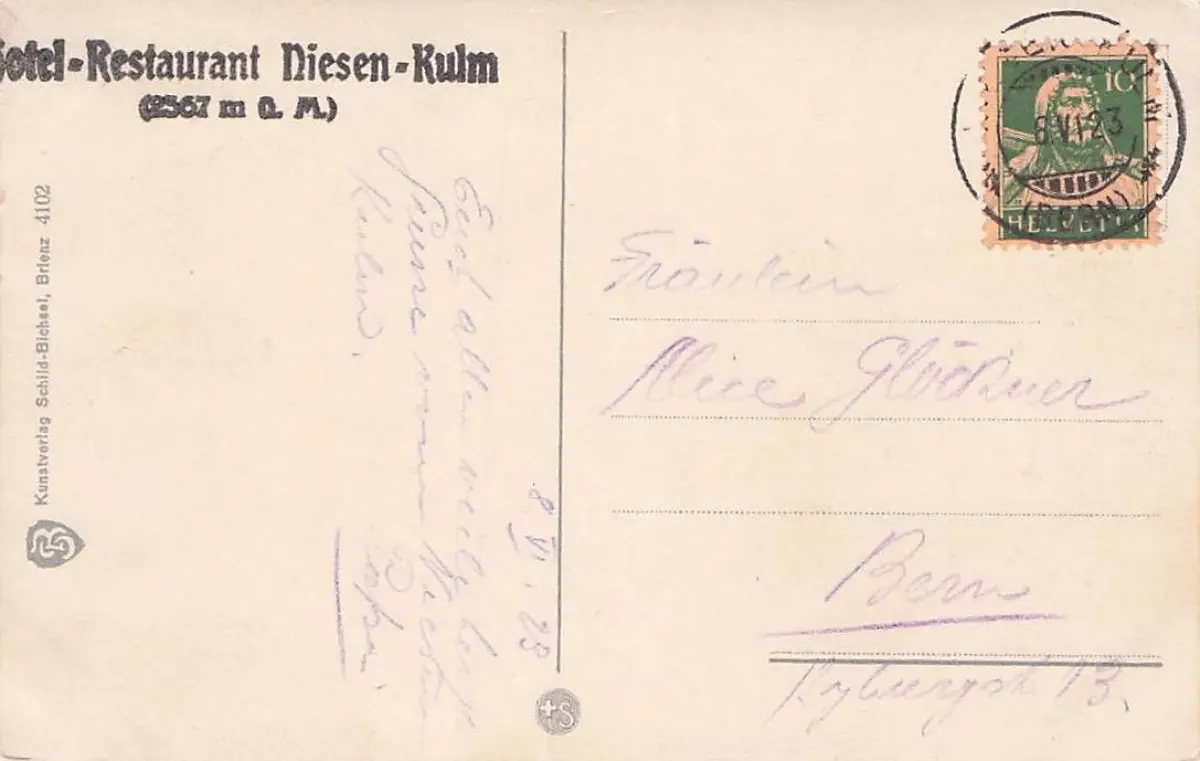 Hotel-Restaurant Niesen-Kulm
(2367 m ü. M.)
Kunstverlag Schild-Bichsel, Brienz 4102
SB
8. VI. 23
Euch allen viel
Grüsse vom Niesen
Kulm.
10
6.VI.23
(BERN)
HELVETIA
Fräulein
Alice Glöckner
Bern
13.
+S